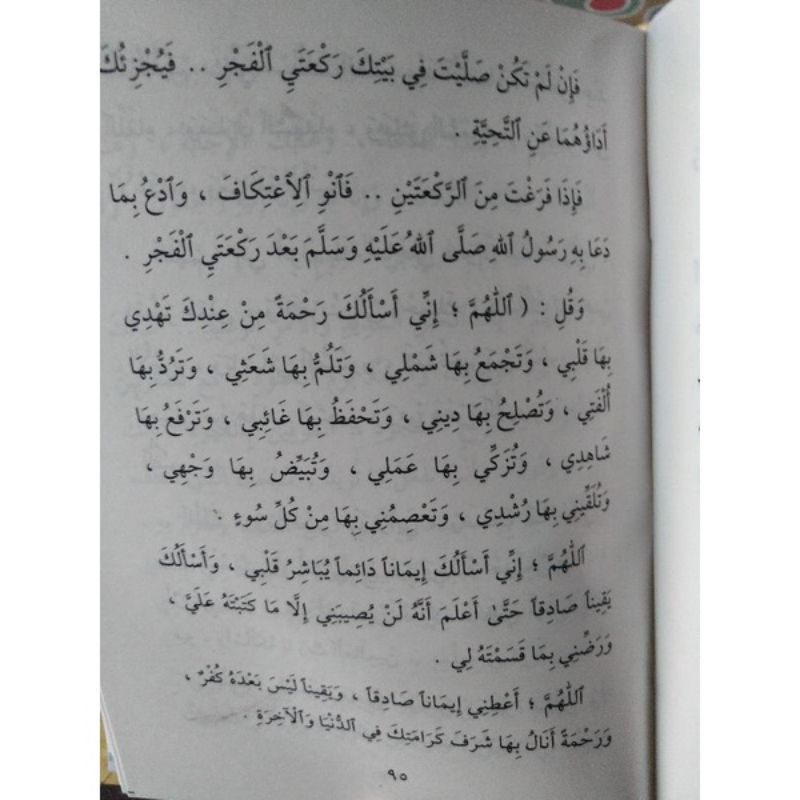 فَإِنْ لَمْ تَكُنْ صَلَّيْتَ فِي بَيْتِكَ رَكْعَتَيِ ٱلْفَجْرِ .. فَيُجْزِئُكَ
أَدَاؤُهُمَا عَنِ ٱلتَّحِيَّةِ .
فَإِذَا فَرَغْتَ مِنَ ٱلرَّكْعَتَيْنِ .. فَٱنْوِ ٱلِٱعْتِكَافَ ، وَٱدْعُ بِمَا
دَعَا بِهِ رَسُولُ ٱللهِ صَلَّى ٱللهُ عَلَيْهِ وَسَلَّمَ بَعْدَ رَكْعَتَيِ ٱلْفَجْرِ .
وَقُلِ : ( ٱللَّهُمَّ ؛ إِنِّي أَسْأَلُكَ رَحْمَةً مِنْ عِنْدِكَ تَهْدِي
بِهَا قَلْبِي ، وَتَجْمَعُ بِهَا شَمْلِي ، وَتَلُمُّ بِهَا شَعَثِي ، وَتَرُدُّ بِهَا
أُلْفَتِي ، وَتُصْلِحُ بِهَا دِينِي ، وَتَحْفَظُ بِهَا غَائِبِي ، وَتَرْفَعُ بِهَا
شَاهِدِي ، وَتُزَكِّي بِهَا عَمَلِي ، وَتُبَيِّضُ بِهَا وَجْهِي ،
وَتُلَقِّنِي بِهَا رُشْدِي ، وَتَعْصِمُنِي بِهَا مِنْ كُلِّ سُوءٍ .
ٱللَّهُمَّ ؛ إِنِّي أَسْأَلُكَ إِيمَاناً دَائِماً يُبَاشِرُ قَلْبِي ، وَأَسْأَلُكَ
يَقِيناً صَادِقاً حَتَّىٰ أَعْلَمَ أَنَّهُ لَنْ يُصِيبَنِي إِلَّا مَا كَتَبْتَهُ عَلَيَّ ،
وَرَضِّنِي بِمَا قَسَمْتَهُ لِي .
ٱللَّهُمَّ ؛ أَعْطِنِي إِيمَاناً صَادِقاً ، وَيَقِيناً لَيْسَ بَعْدَهُ كُفْرٌ ،
وَرَحْمَةً أَنَالُ بِهَا شَرَفَ كَرَامَتِكَ فِي ٱلدُّنْيَا وَٱلْآخِرَةِ .
٩٥